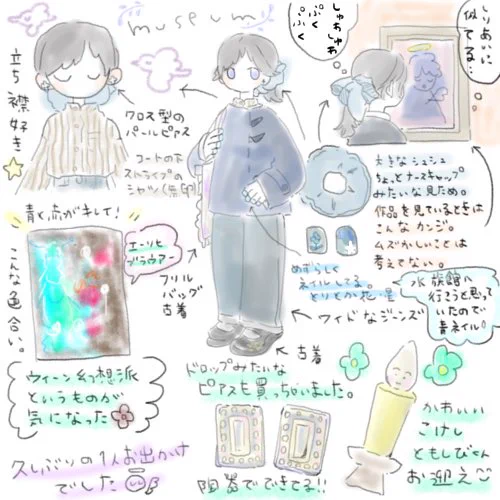 museum
しゅわしゅわ
ぷく
ぷく
しりあいに
似てる…
立ち襟好き
クロス型の
パールピアス
コートの下
ストライプの
シャツ(無印)
大きなシュシュ
ちょっとナースキャップ
みたいな見ため。
作品を見ているときは
こんなカンジ。
ムズかしいことは
考えてない。
青と赤がキレイ!
エーリヒ
ブラウアー
こんな色合い。
フリル
バッグ
古着
めずらしく
ネイルしてる。
とりとか花とか星
水族館へ
行こうと思って
いたので
青ネイル!
ワイドなジーンズ
古着
ウィーン幻想派
というものが
気になった
ドロップみたいな
ピアスも買っちゃいました。
かわいい
こけし
ともしびくん
お迎え
久しぶりの1人お出かけ
でした
陶器でできてる!!